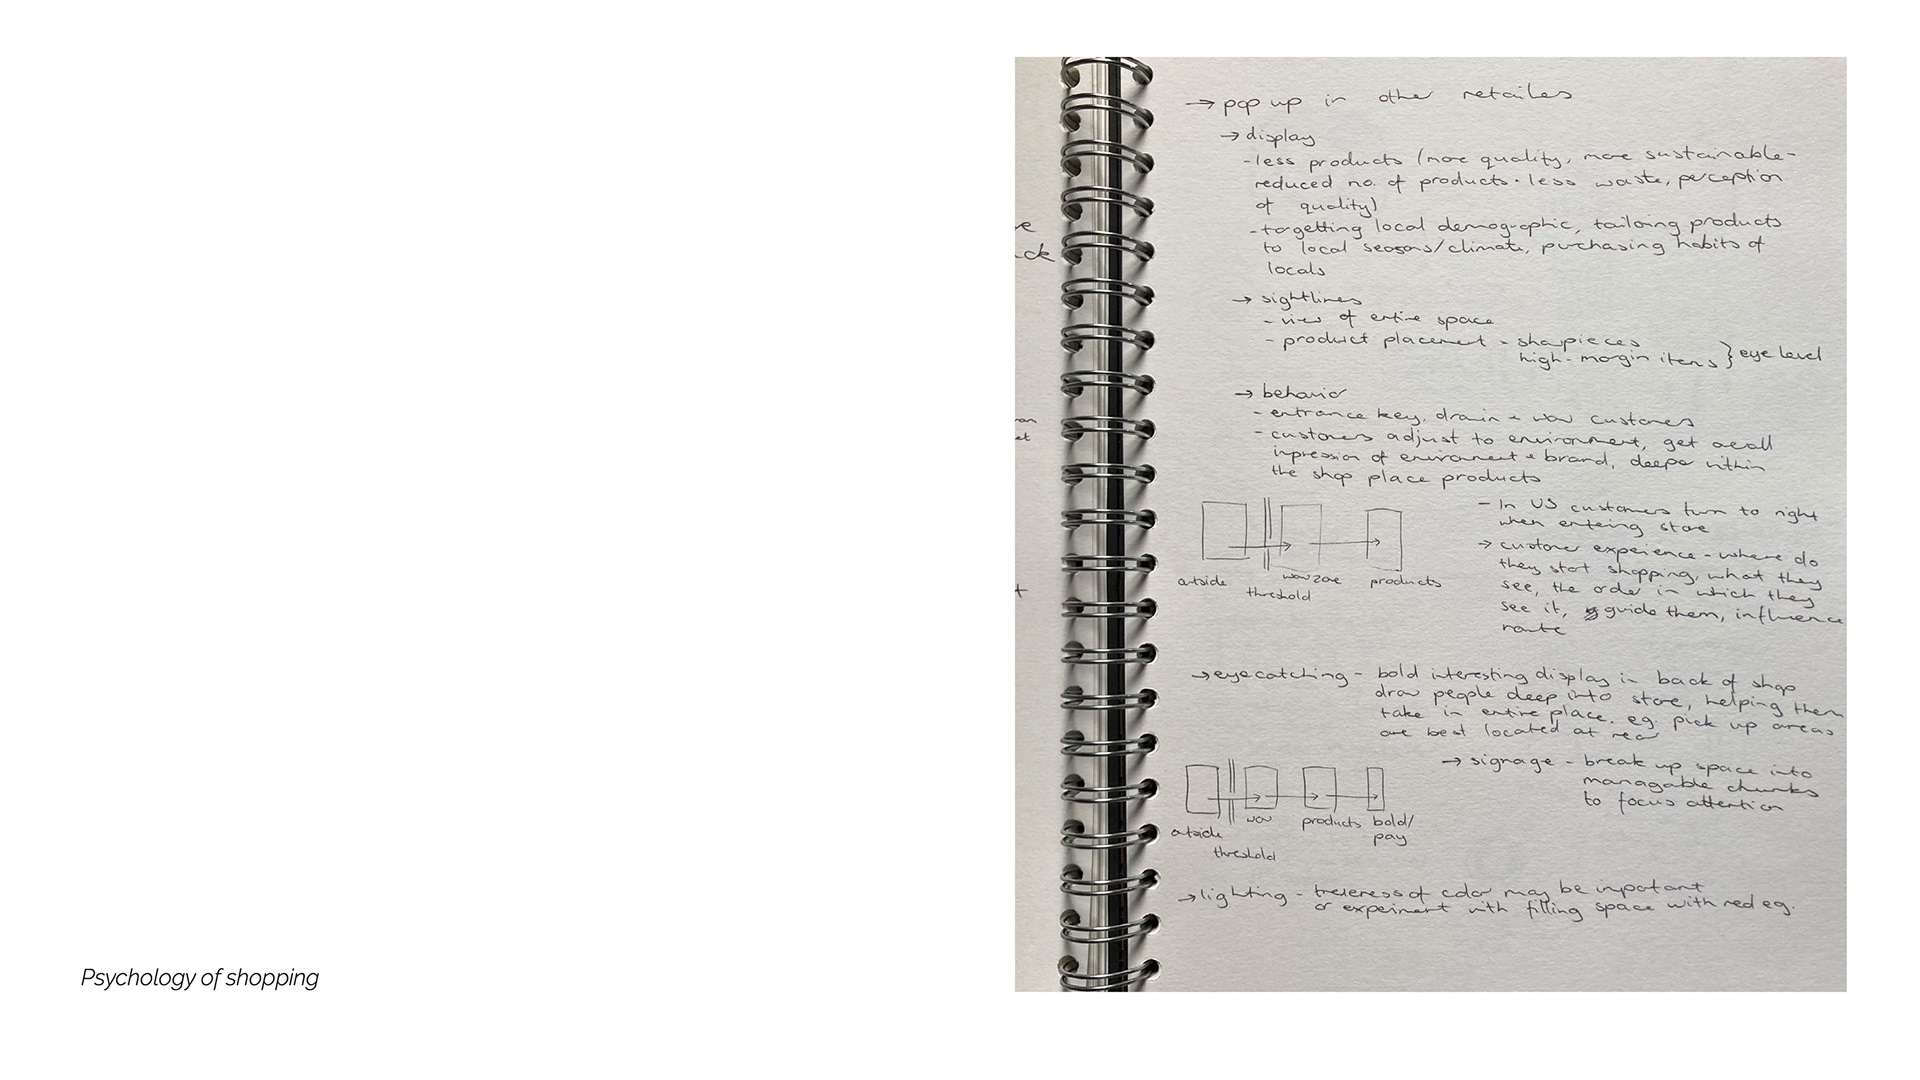 → pop up in other retailes
→ display
- less products (more quality, more sustainable -
reduced no. of products · less waste, perception
of quality)
- targetting local demographic, tailoring products
to local seasons/climate, purchasing habits of
locals
→ sightlines
- view of entire space
- product placement -
high-margin items } eye level
→ behavior
- entrance key, + wow customers
- customers adjust to environment, get overall
impression of environment + brand, deeper within
the shop place products
- In US customers turn to right
when entering store
→ customer experience - where do
they start shopping, what they
see, the order in which they
see it, guide them, influence
route
outside
wow zone
products
threshold
→ eyecatching - bold interesting display in back of shop
draw people deep into store, helping them
take in entire place. eg. pick up areas
are best located at rear
→ signage - break up space into
managable chunks
to focus attention
outside
wow
products
bold/
pay
threshold
→ lighting - of color may be important
or experiment with filling space with red eg.
Psychology of shopping